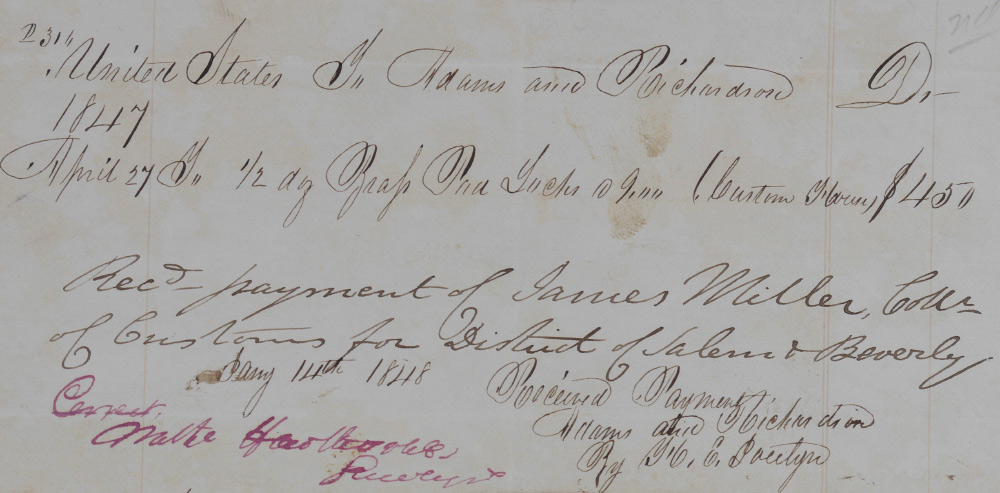 United States To Adams and Richardson Dr
1847
April 27 To 1/2 dz Brass Pad Locks 9.00 (Custom House) $4 50
Recd payment of James Miller, Collr
of Customs for District of Salem & Beverly
Jany 14th 1848
Received Payment
Adams and Richardson
By H. E. Jocelyn
Correct.